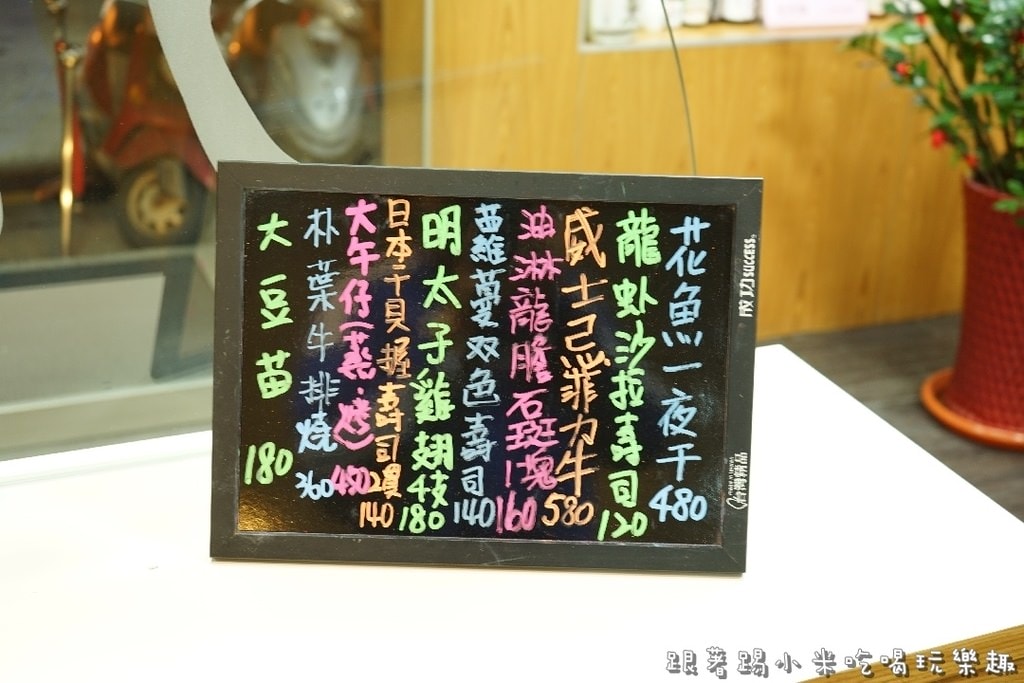 花魚一夜干 480
龍虾沙拉壽司 120
威士忌菲力牛 580
油淋龍膽石斑1塊 160
茜蘿蔓双色壽司 140
明太子雞翅4枝 180
日本干貝握壽司2貫 140
大午仔(蒸.烤) 480
朴葉牛排燒 360
大豆苗 180
成功 SUCCESS
台灣精品
跟著踢小米吃喝玩樂趣